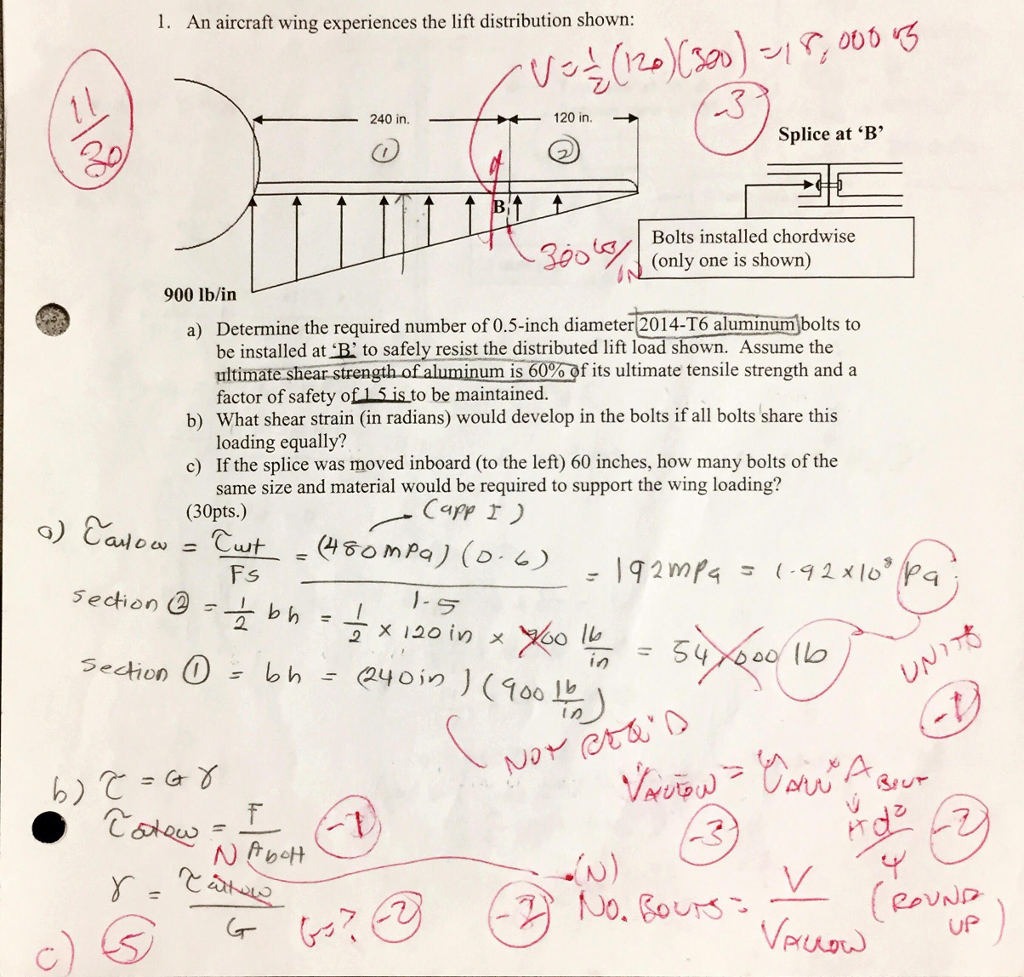 1. An aircraft wing experiences the lift distribution shown:
V = 1/2 (120)(300) = 18,000 lb
11/30
-3
240 in.
120 in.
Splice at ‘B’
①
②
B
300 lb/in
Bolts installed chordwise
(only one is shown)
900 lb/in
a) Determine the required number of 0.5-inch diameter 2014-T6 aluminum bolts to
be installed at ‘B’ to safely resist the distributed lift load shown. Assume the
ultimate shear strength of aluminum is 60% of its ultimate tensile strength and a
factor of safety of 1.5 is to be maintained.
b) What shear strain (in radians) would develop in the bolts if all bolts share this
loading equally?
c) If the splice was moved inboard (to the left) 60 inches, how many bolts of the
same size and material would be required to support the wing loading?
(30pts.)
(app I)
a) τallow = τult/FS = (480mPa)(0.6)/1.5 = 192mPa = 1.92x10⁸ Pa
section ② = 1/2 bh = 1/2 x 120in x lb/in = 54,000 lb
section ① = bh = (240in)(900 lb/in)
UNITS
-1
NOT REQ'D
b) τ = Gγ
VALLOW = τALL x ABOLT
πd²/4
-3
-2
τallow = F/N Abolt
γ = τallow/G
G=?
-2
(N)
NO. BOLTS = V/VALLOW (ROUND UP)
c)
-5